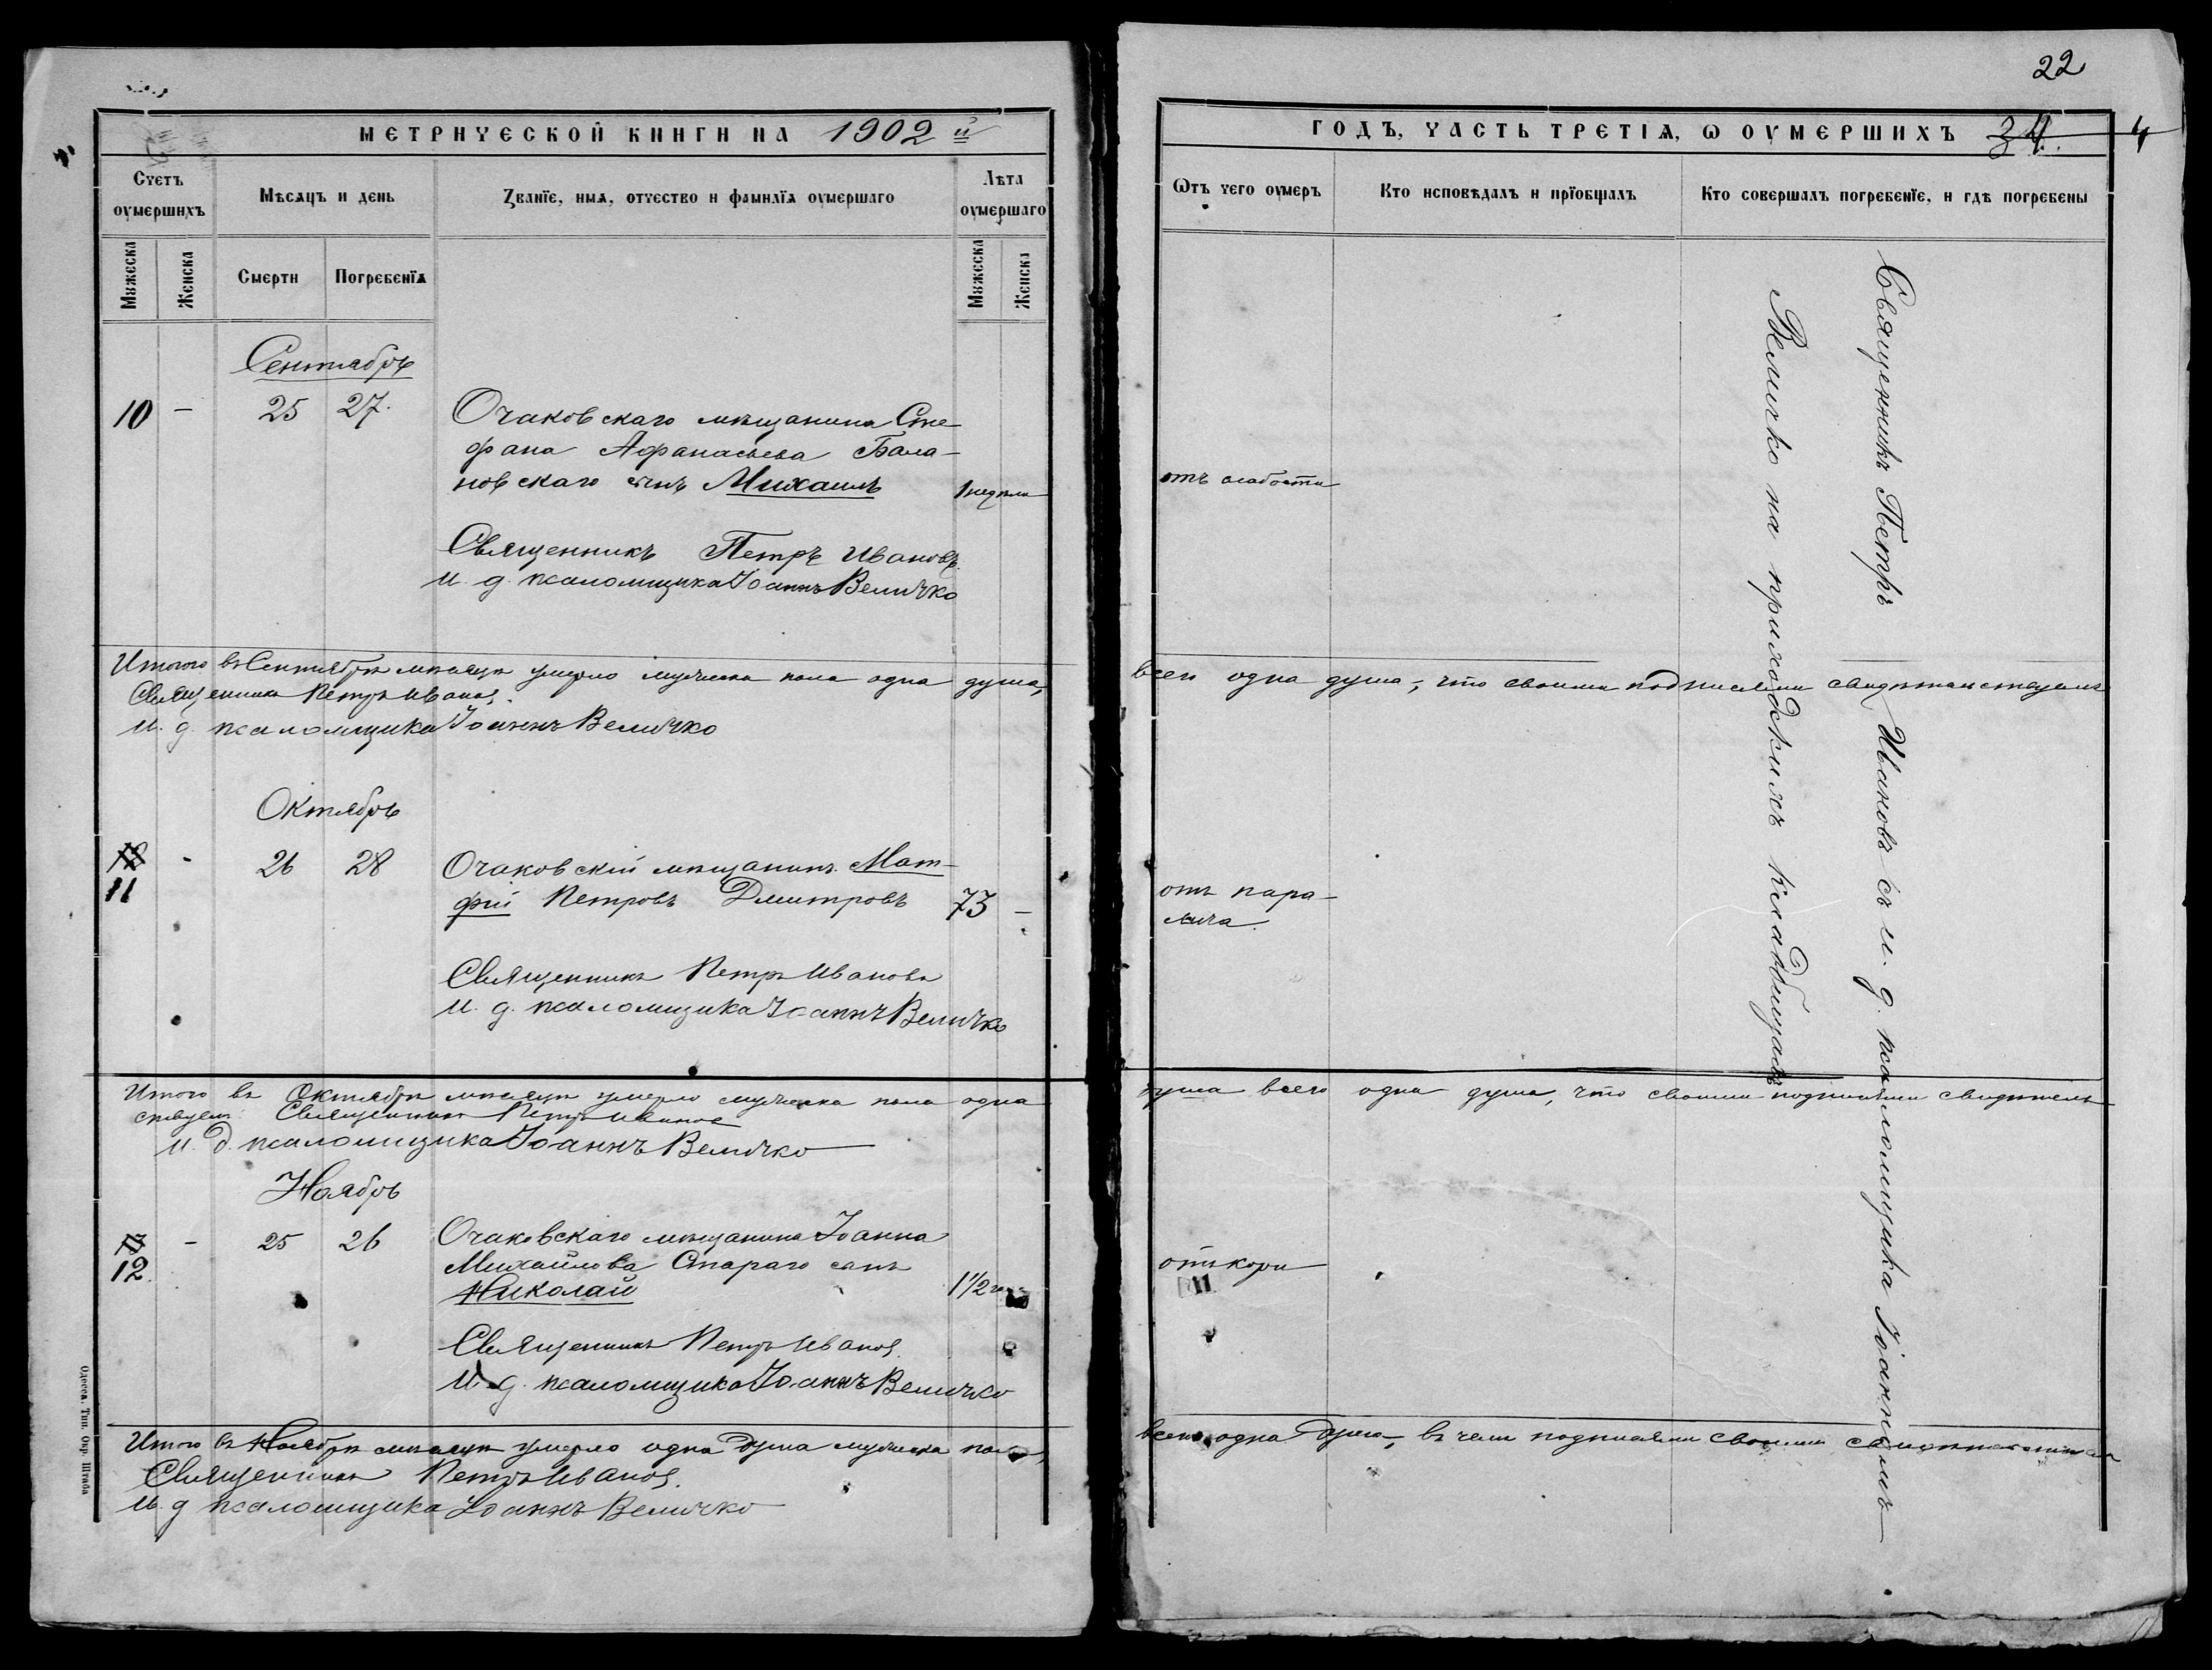 МЕТРИЧЕСКОЙ КНИГИ НА 1902 й
Счетъ оумершихъ
Мѣсяцъ и день
Званїе, имя, отчество и фамилїя оумершаго
Лѣта оумершаго
Мужеска
Женска
Смерти
Погребенїя
Мужеска
Женска
Сентябрь
10 - 25 27.
Очаковскаго мѣщанина Сте-
фана Афанасьева Бала-
новскаго сынъ Михаилъ 1 недѣли
Священникъ Петръ Ивановъ.
И. д. псаломщика Іоаннъ Величко
Итого въ Сентябрѣ мѣсяцѣ умерло мужеска пола одна душа,
Священникъ Петръ Ивановъ.
И. д. псаломщика Іоаннъ Величко
Октябрь
11 - 26 28
Очаковскій мѣщанинъ Мат-
фій Петровъ Дмитровъ 73 -
Священникъ Петръ Ивановъ
И. д. псаломщика Іоаннъ Величко
Итого въ Октябрѣ мѣсяцѣ умерло мужеска пола одна
ствуемъ Священникъ Петръ Ивановъ
И. д. псаломщика Іоаннъ Величко
Ноябрь
12. - 25 26
Очаковскаго мѣщанина Іоанна
Михайлова Стараго сынъ
Николай 1 1/2
Священникъ Петръ Ивановъ.
И. д. псаломщика Іоаннъ Величко
Итого въ Ноябрѣ мѣсяцѣ умерло одна душа мужеска пола,
Священникъ Петръ Ивановъ.
И. д псаломщика Іоаннъ Величко
Одесса. Тип. Окр. Штаба
22
ГОДЪ, ЧАСТЬ ТРЕТІЯ, Ѡ ОУМЕРШИХЪ 34. 4
Ѡтъ чего оумеръ
Кто исповѣдалъ и прїобщалъ
Кто совершалъ погребенїе, и гдѣ погребены
отъ слабости
всего одна душа, что своими подписями свидѣтельствуемъ
отъ пара-
лича.
душа всего одна душа, что своими подписями свидѣтель-
отъ кори
всего одна душа, въ чемъ подписями своими свидѣтельствуемъ
Священникъ Петръ Ивановъ съ и. д. псаломщика Іоанномъ
Величко на приходскомъ кладбищѣ